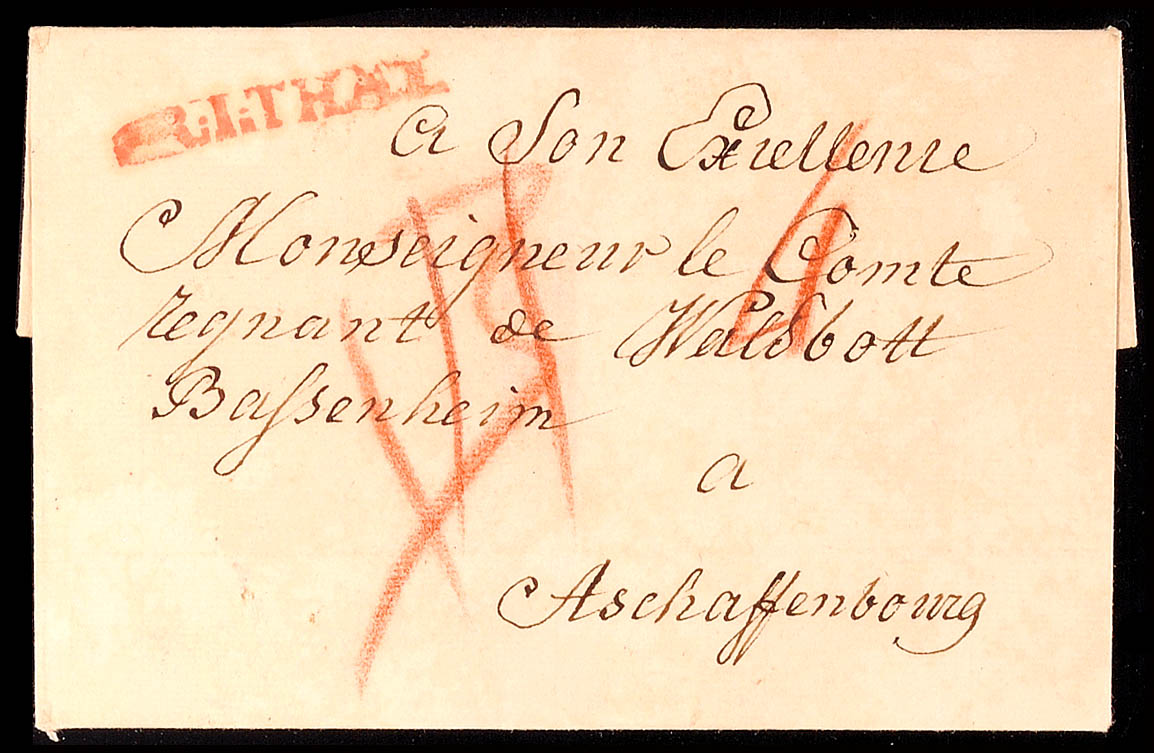 R.I.THAL
a Son Exellence
Monseigneur le Comte
regnant de Waldbott
Bassenheim
a
Aschaffenbourg
4